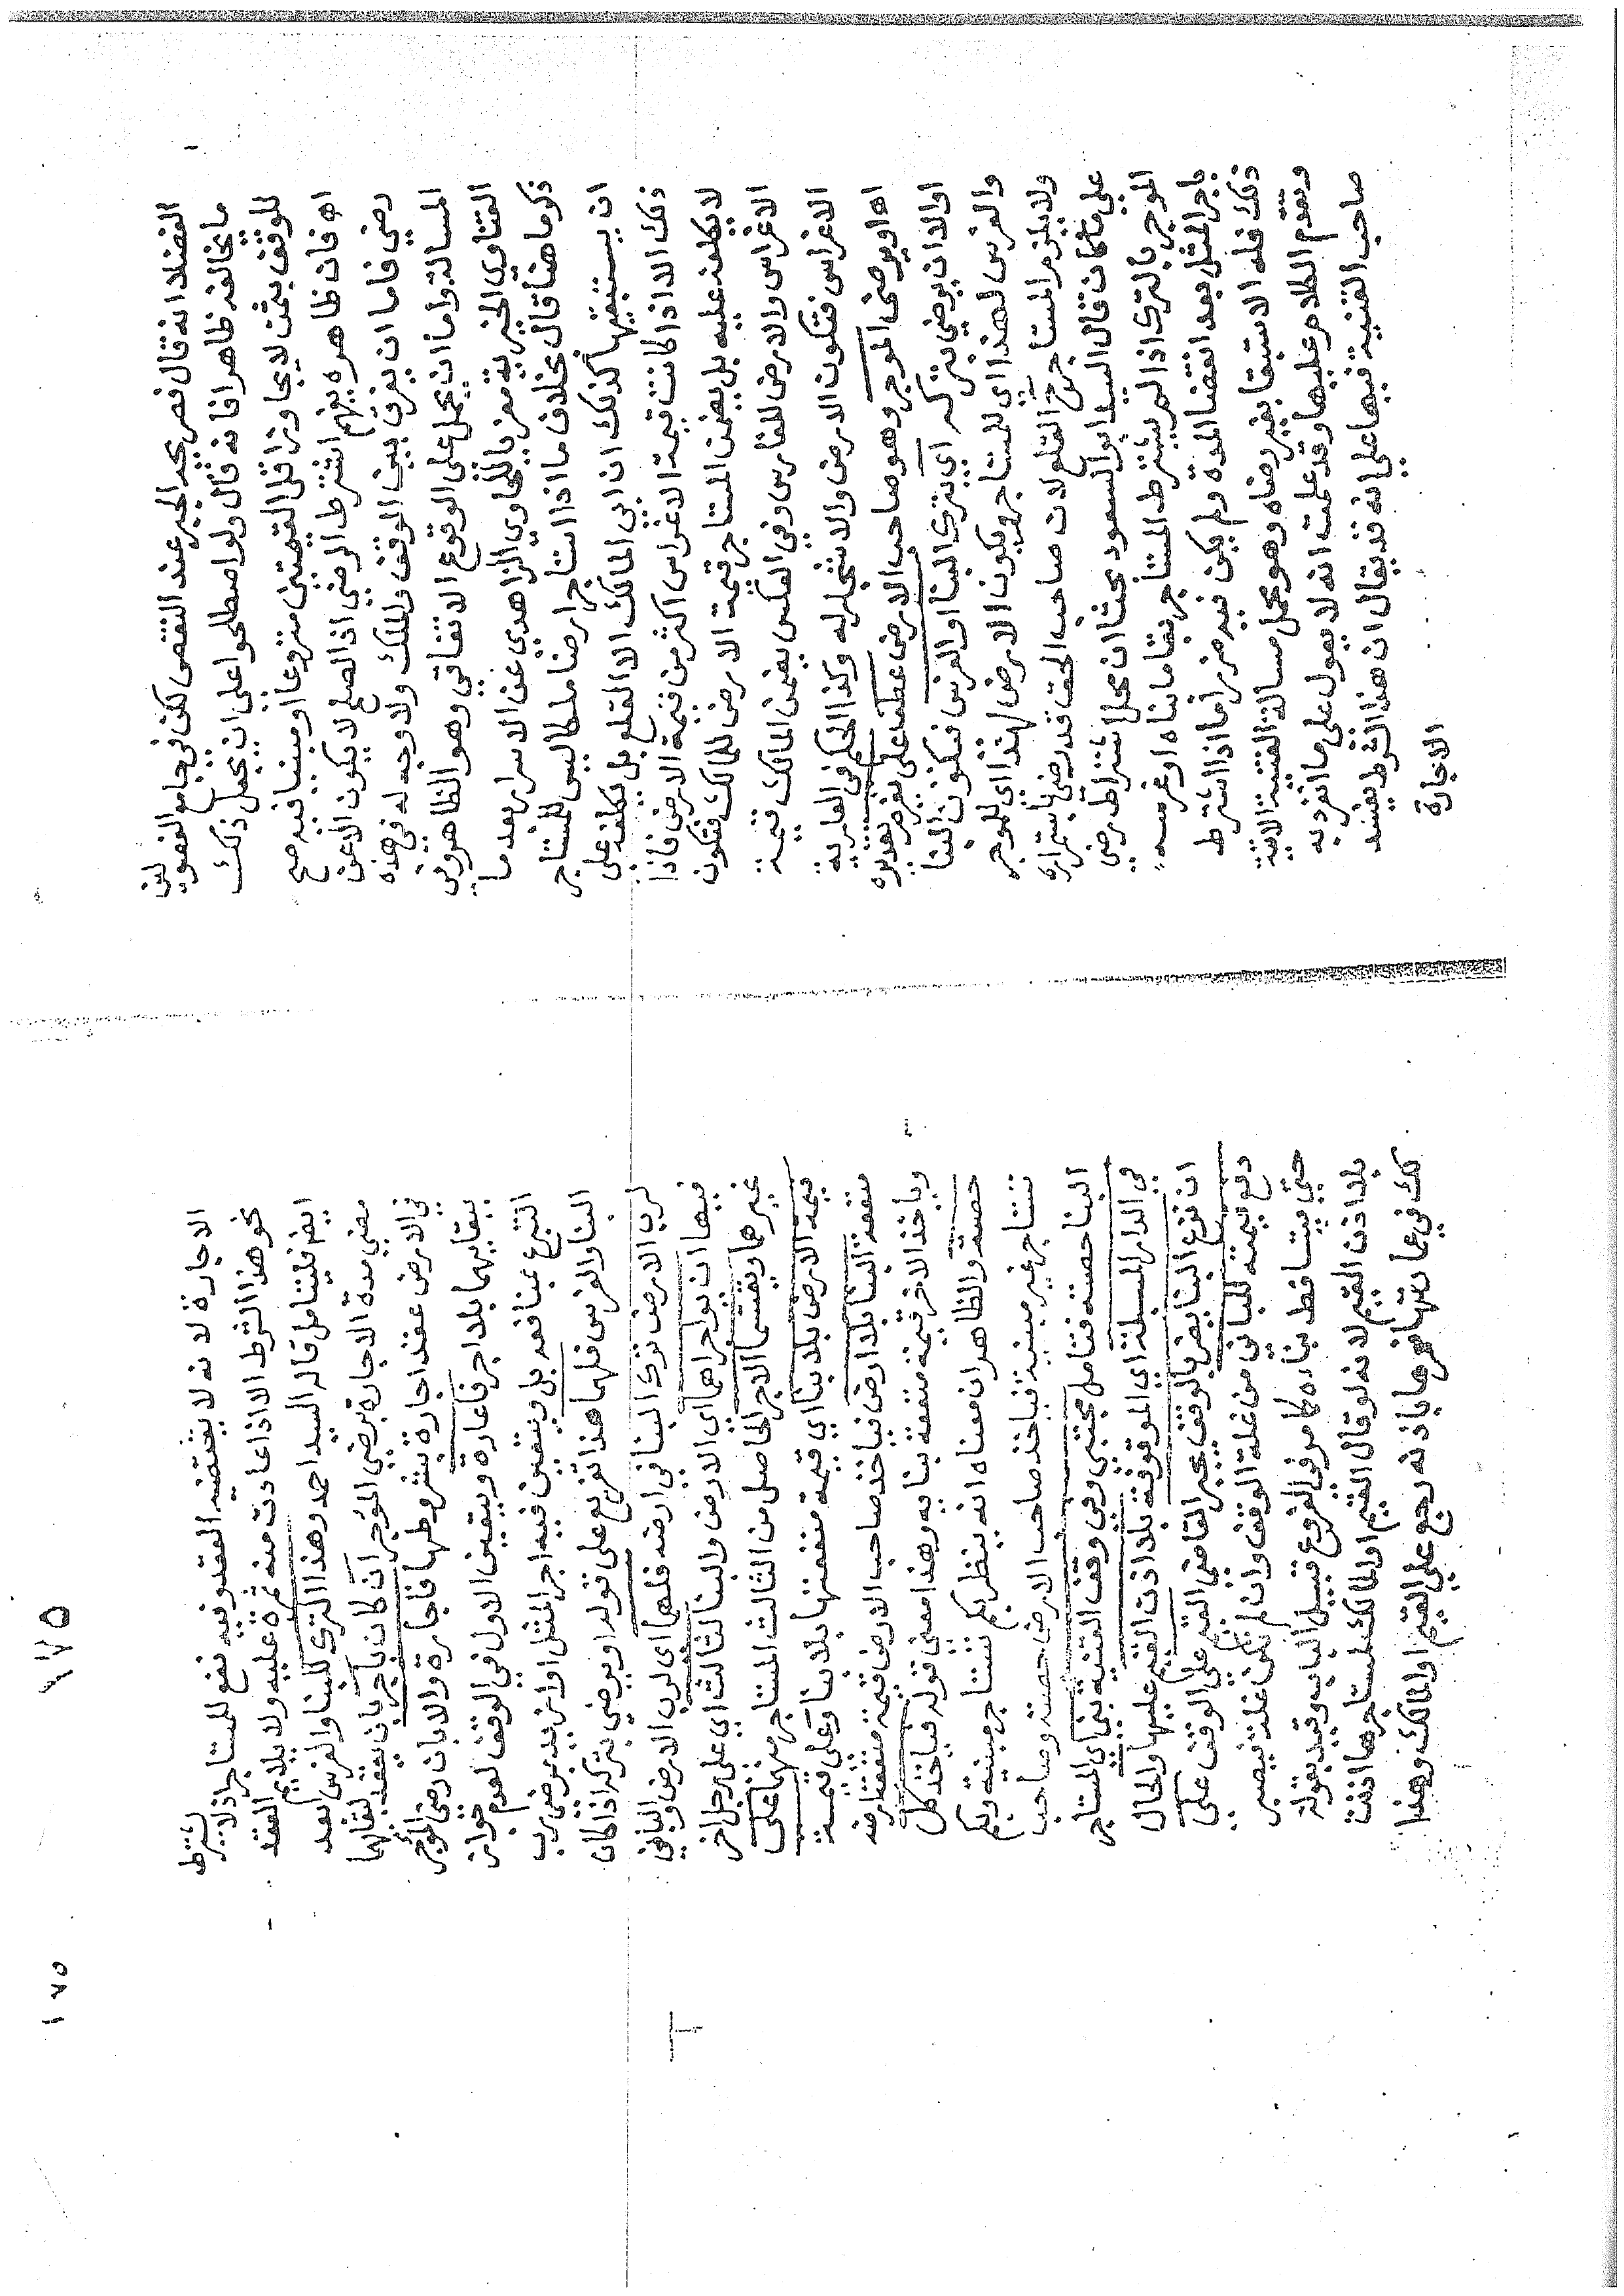 الفضلا انه قال نص يجد الجبر عند النقص لكن في جامع الفصولين
ما يخالفه ظاهرا فانه قال ولو اصطلحوا على ان يجعل ذلك
للوقف بثمن لا يجاوز اقل القيمتين منزوعا او مبنيا فيه صح
اه فان ظاهره يفهم اشترط الرضي اذ الصلح لا يكون الا عن
رضي فاما ان يفرق بين الوقف والملك ولا وجه له في هذه
المسالة واما ان يحمل على الوقوع الاتفاقي وهو الظاهر وفي
الفتاوي الخيرية معزيا للحاوي الزاهدي عن الاسرار بعد ما
ذكر ما هنا قال بخلاف ما اذا استاجر ارضا ملكا ليس للمستاجر
ان يستبقيها كذلك ان ابي المالك الا القلع بل يكلفه على
ذلك الا اذا كانت قيمة الاغراس اكثر من قيمة الارض فاذا
لا يكلفه عليه بل يضمن المستاجر قيمة الارض للمالك فتكون
الاغراس والارض للغارس وفي العكس يضمن المالك قيمة
الاغراس فتكون الارض والاشجار له وكذا الحكم في العارية
اه او يرضى الموجر وهو صاحب الارض عطفا على يغرم بتقديره
اولا ان يرضي بتركه اي بترك البنا او الغرس فيكون البنا
والغرس لهذا اي للمستاجر ويكون الارض لهذا اي للموجر
ولا يلزم المستاجر ح القلع لان صاحب الحق قد رضي باستمراره
علي ما كان قال السيد ابو السعود بحثا ان محل اشتراط رضي
الموجر بالترك اذا لم يشترط المستاجر بقا ما بناه او غرسه
باجر المثل بعد انقضا المدة ولم يكن فيه ضرر اما اذا اشترط
ذلك فله الاستبقا بغير رضاه وهو محل مسالة القنية الاتية
وتقدم الكلام عليها وقد علمت انه لا يعول على ما انفرد به
صاحب القنية فيها علي انه قد يقال ان هذا الشرط يفسد
الاجارة
١٧٥
١٧٥
الاجارة لانه لا يقتضيه العقد وفيه نفع للمستاجر اذ لا يشترط
نحو هذا الشرط الا اذا عادت منه ثمرة عليه ولا يلايم العقد
ايضا فليتامل قاله السيد احمد وهذا الترك للبنا والغرس بعد
مضي مدة الاجارة برضي الموجر ان كان باجر بان يعقد لبقائهما
في الارض عقد اجارة بشروطها فاجارة والا بان رضي الموجر
ببقايهما بلا اجر فاعارة ويتعين الاول في الوقف لعدم جواز
التبرع بمنافعه بل ويتعين فيه اجر المثل او ازيد برضي رب
البنا والغرس فلهما هذا تفريع على قوله او يرضي بتركه اذا كان
لرب الارض ترك البنا في ارضه فلهما اي لرب الارض والباني
فيها ان يواجراهما اي الارض والبنا لثالث اي على رجل اخر
غيرهما ويقتسما الاجر الحاصل من الثالث المستاجر منهما على
قيمة الارض بلا بنا اي قيمة منفعتها بلا بنا وعلى قيمة
منفعة البنا بلا ارض فياخذ صاحب الارض قيمة منفعة ارضه
وياخذ الاخر قيمة منفعة بنايه وهذا معني قوله فياخذ كل
حصته والظاهر ان معناه انه ينظر بكم تستاجر مبنية وبكم
تستاجر غير مبنية فياخذ صاحب الارض حصته وصاحب
البنا حصته فتامل مجتبي وفي وقف القنية بني اي المستاجر
في الدار المسبلة اي الموقوفة بلا اذن القيم عليها والحال
ان نزع البنا يضر بالوقف يجبر القاضي القيم علي الوقف على
دفع قيمته للباني من غلة الوقف وان لم تكن غلة فيصبر
حتي يتساقط بناه كما مر في الفروع قبيل الباب وقيد بقوله
بلا اذن القيم لانه لو قال القيم او المالك لمستاجرها اذنت
لك في عمارتها فعمرها باذنه رجع علي القيم او المالك وهذا